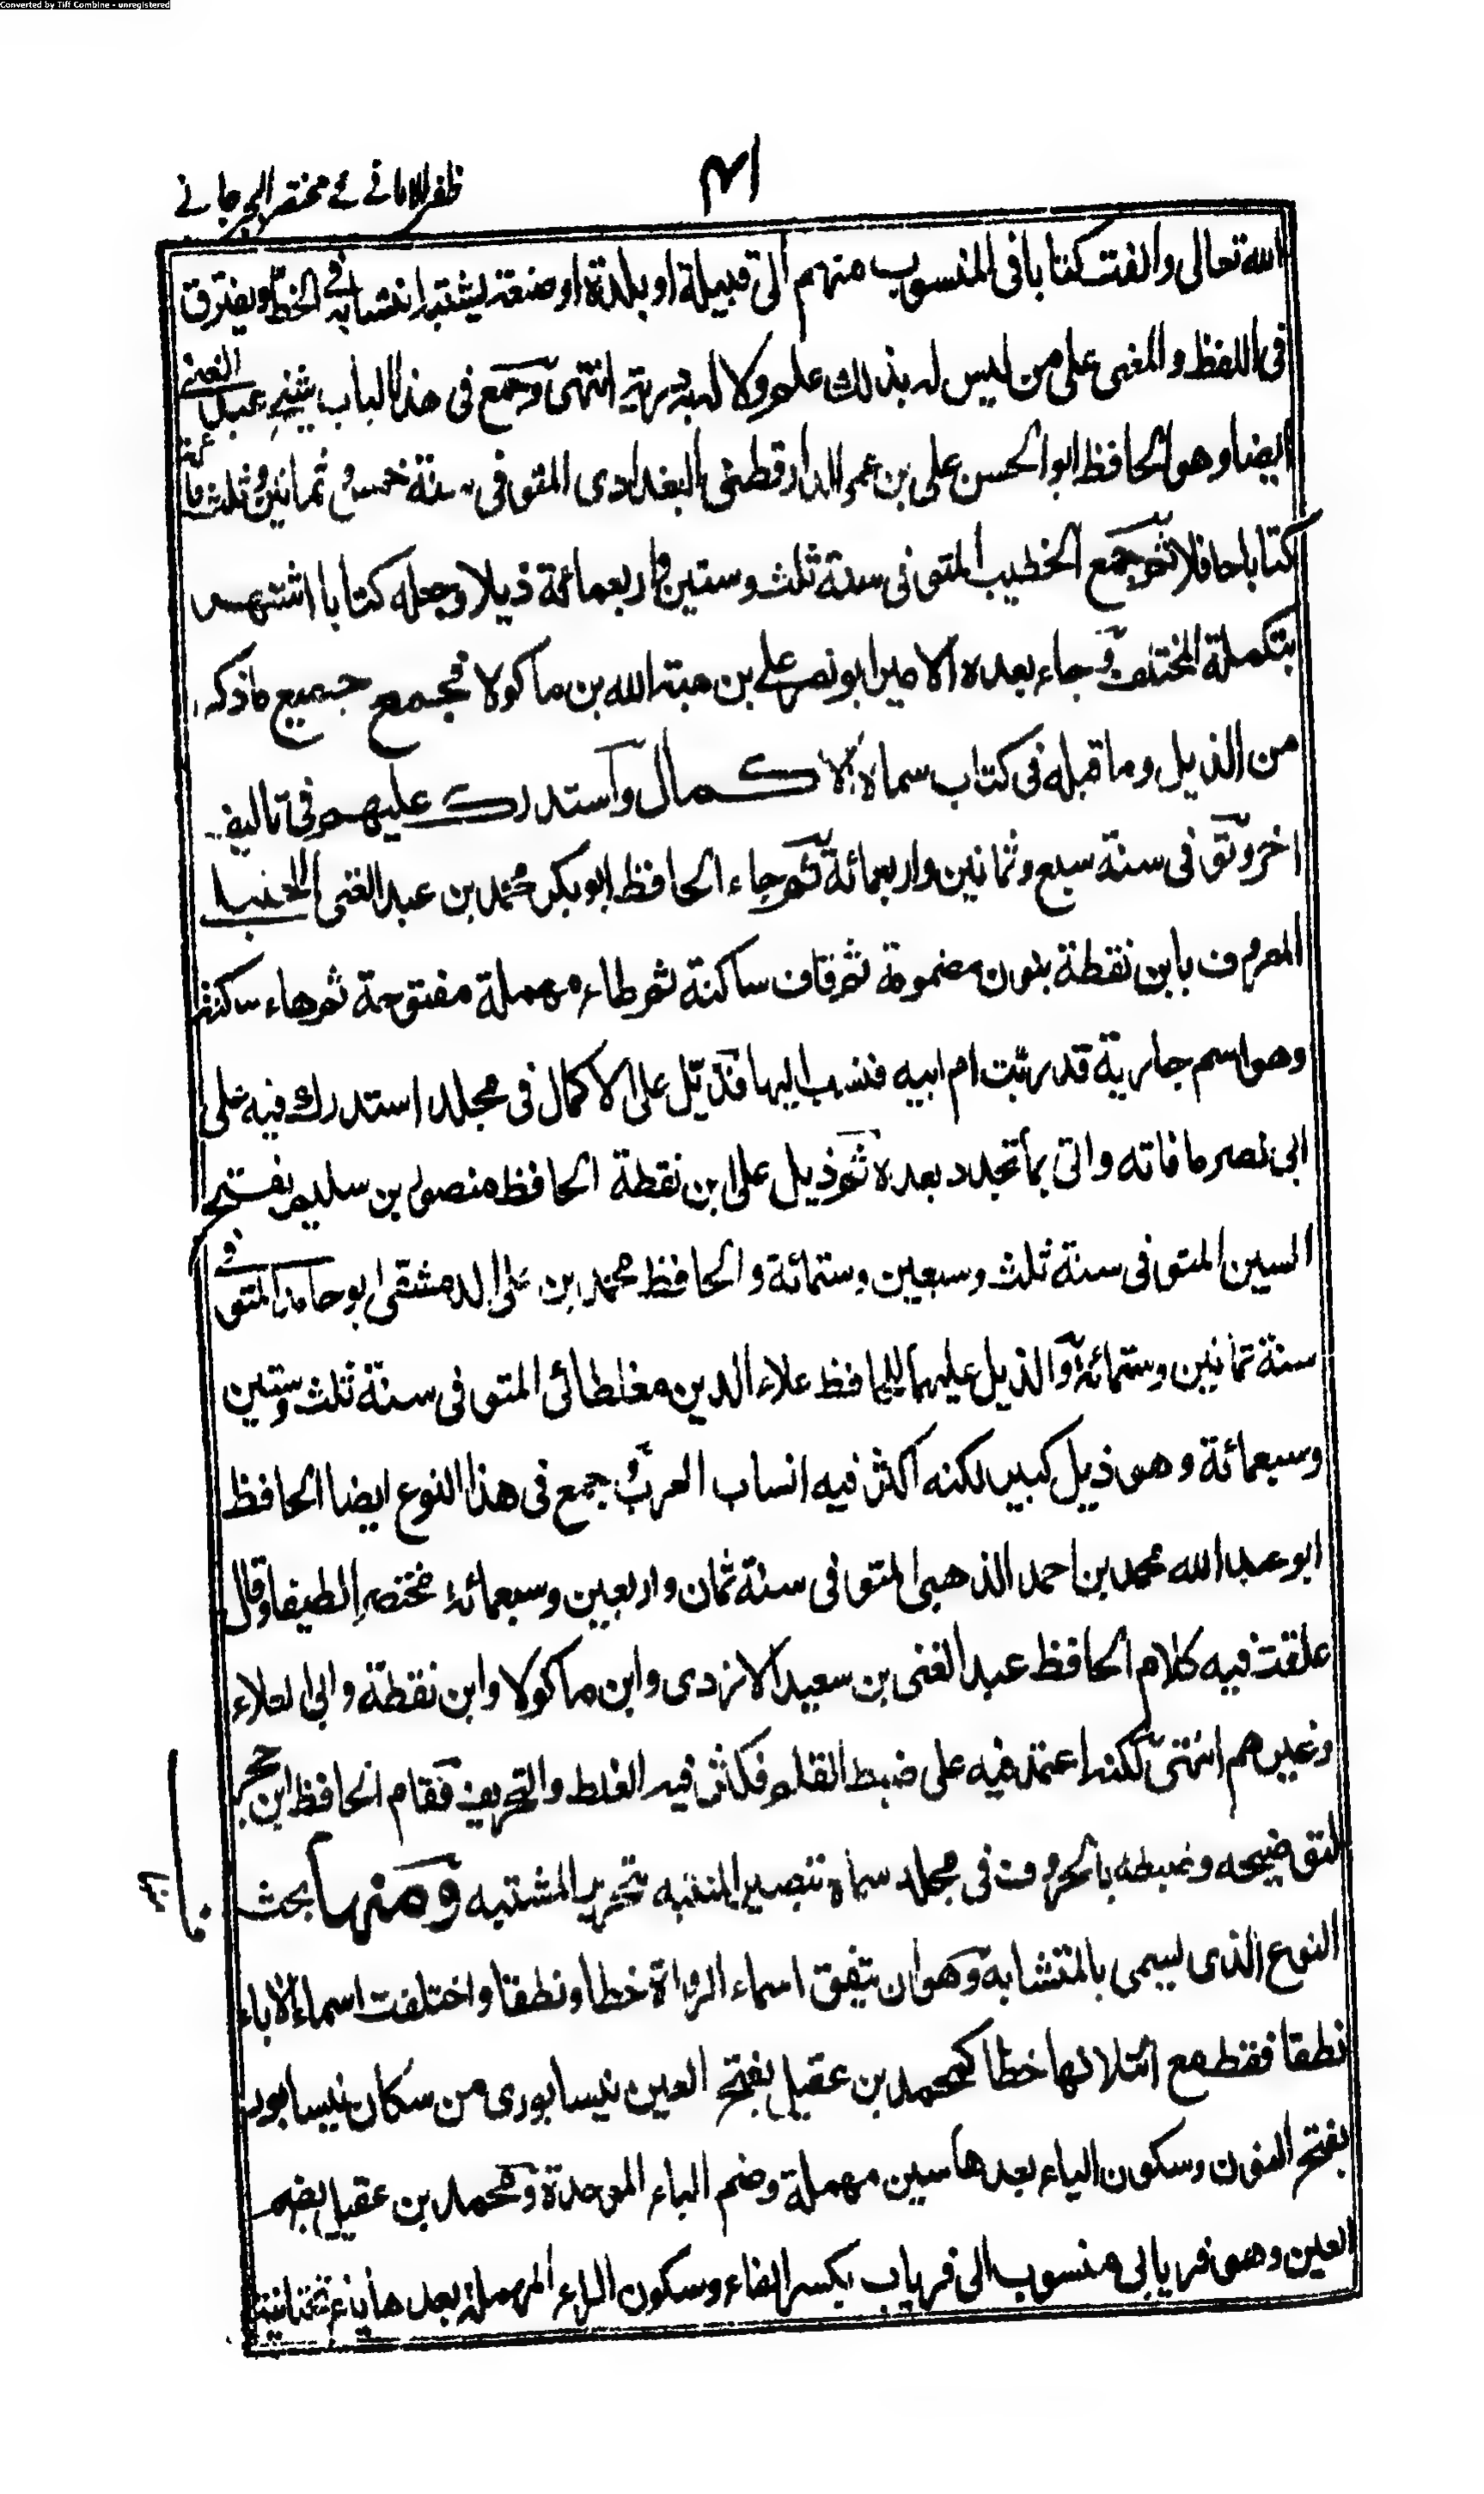 Converted by Tiff Combine - unregistered
٤١
ظفر الامانے فے مختصر الجرجانے
الله تعالى والفت كتابا فى المنسوب منهم الى قبيلة او بلدة او صنعة يشتبه انتسابه فے الخط ويفترق
فى اللفظ والمعنى على من ليس له بذلك علم ولا له به درية انتهى وجمع فى هذا الباب شيخ عبد الغنے
ايضا وهو الحافظ ابو الحسن على بن عمر الدار قطنى البغدادى المتوفى سنة خمس وثمانين وثلث مائة
كتابا حافلا ثم جمع الخطيب المتوفى سنة ثلث وستين واربعمائة ذيلا وجعله كتابا اشتهر
بتكملة المختلف وجاء بعده الامير ابو نصر علے بن هبة الله بن ماكولا فجمع جميع ما ذكر
من الذيل وما قبله فى كتاب سماه بالاكمال واستدرك عليهم فى تاليف
اخر وتوفى فى سنة سبع وثمانين واربعمائة ثم جاء الحافظ ابو بكر محمد بن عبد الغنى الحنبلى
المعروف بابن نقطة بنون مضمومة ثم قاف ساكنة ثم طاء مهملة مفتوحة ثم هاء ساكنة
وهو اسم جارية قد ربت ام ابيه فنسب اليها فذيّل على الاكمال فى مجلد استدرك فيه على
ابى نصر ما فاته واتى بما تجدد بعده ثم ذيل على ابن نقطة الحافظ منصور بن سليم بفتح
السين المتوفى سنة ثلث وسبعين وستمائة والحافظ محمد بن على الدمشقى ابو حامد المتوفے
سنة ثمانين وستمائة والذيل عليهما للحافظ علاء الدين مغلطائى المتوفى سنة ثلث وستين
وسبعمائة وهو ذيل كبير لكنه اكثر فيه انساب العرب وجمع فى هذا النوع ايضا الحافظ
ابو عبد الله محمد بن احمد الذهبى المتوفى سنة ثمان واربعين وسبعمائة مختصرا لطيفا وقال
علقت فيه كلام الحافظ عبد الغنى بن سعيد الازدى وابن ماكولا وابن نقطة وابى العلاء
وغيرهم انتهى لكنه اعتمد فيه على ضبط القلم فكثر فيه الغلط والتحريف فقام الحافظ ابن حجر
لتوضيحه وضبطه بالحروف فى مجلد سماه تبصير المنتبه تحرير المشتبه ومنها بحث
النوع الذى يسمى بالمتشابه وهو ان يتفق اسماء الرواة خطا ونطقا واختلفت اسماء الاباء
نطقا فقط مع ائتلافها خطا كمحمد بن عقيل بفتح العين نيسابورى من سكان نيسابور
بفتح النون وسكون الياء بعدها سين مهملة وضم الباء الموحدة ومحمد بن عقيل بضم
العين وهو فريابى منسوب الى فرياب بكسر الفاء وسكون الراء المهملة بعدها ياء تحتانية